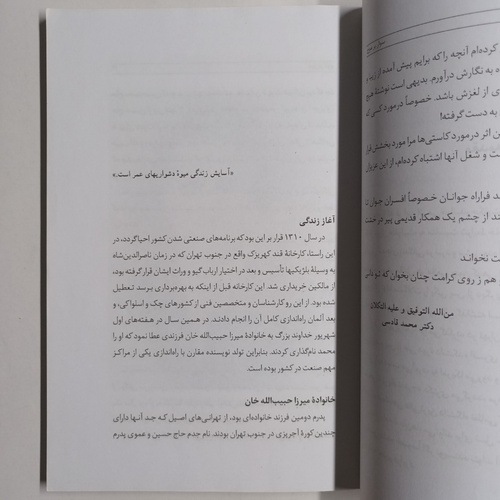 کرده‌ام آنچه را که برایم پیش آمده از زیبا و
به نگارش درآورم. بدیهی است نوشتهٔ هیچ
ی از لغزش باشد. خصوصاً در مورد کسی که
به دست گرفته!
ن اثر در مورد کاستی‌ها مرا مورد بخشش قرار
ت و شغل آنها اشتباه کرده‌ام، از این عزیزان
د فراراه جوانان خصوصاً افسران جوان
ند از چشم یک همکار قدیمی پیر درخشت
ت نخواند
هم ز روی کرامت چنان بخوان که تو دانی
من‌الله التوفیق و علیه التکلان
دکتر محمد قادسی
«آسایش زندگی میوهٔ دشواریهای عمر است.»
آغاز زندگی
در سال ۱۳۱۰ قرار بر این بود که برنامه‌های صنعتی شدن کشور احیا گردد، در
این راستا، کارخانهٔ قند کهریزک واقع در جنوب تهران که در زمان ناصرالدین‌شاه
به وسیلهٔ بلژیکیها تأسیس و بعد در اختیار ارباب گیو و وراث ایشان قرار گرفته بود،
از مالکین خریداری شد. این کارخانه قبل از اینکه به بهره‌برداری برسد تعطیل
شده بود. از این رو کارشناسان و متخصصین فنی از کشورهای چک و اسلواکی، و
بعد آلمان راه‌اندازی کامل آن را انجام دادند. در همین سال در هفته‌های اول
شهریور خداوند بزرگ به خانوادهٔ میرزا حبیب‌الله خان فرزندی عطا نمود که او را
محمد نام‌گذاری کردند. بنابراین تولد نویسنده مقارن با راه‌اندازی یکی از مراکز
مهم صنعت در کشور بوده است.
خانوادهٔ میرزا حبیب‌الله خان
پدرم دومین فرزند خانواده‌ای بود، از تهرانی‌های اصیل که جد آنها دارای
چندین کورهٔ آجرپزی در جنوب تهران بودند. نام جدم حاج حسین و عموی پدرم